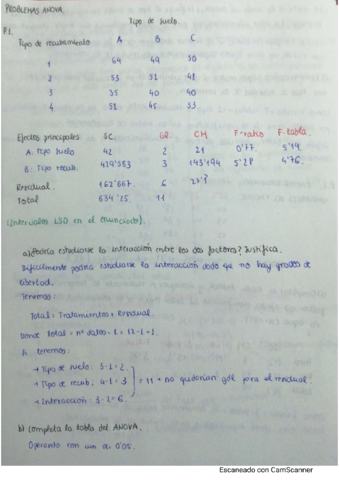 PROBLEMAS ANOVA.
P.1.
Tipo de suelo.
Tipo de recubrimiento A B C
1 64 49 50
2 53 51 48
3 35 40 40
4 51 45 53
Efectos principales SC. GR. CM F-ratio F-tabla.
A: Tipo suelo 42 2 21 0'77. 5'14
B: Tipo recub. 429'583 3 143'194 5'28 4'76.
Residual 162'667. 6
Total 634'25. 11
(Intervalos LSD en el enunciado).
a) ¿Podría estudiarse la interacción entre los dos factores? Justifica.
Difícilmente podría estudiarse la interacción dado que no hay grados de
libertad.
Tenemos:
Total = Tratamientos + Residual.
Donde Total = nº datos - 1 = 12 - 1 = 11.
tenemos:
→ Tipo de suelo: 3-1=2.
→ Tipo de recub. 4-1=3 = 11 → no quedarían gdl para el residual.
→ Interacción: 3·2=6.
b) Completa la tabla del ANOVA.
Operando con un α 0'05.
Escaneado con CamScanner